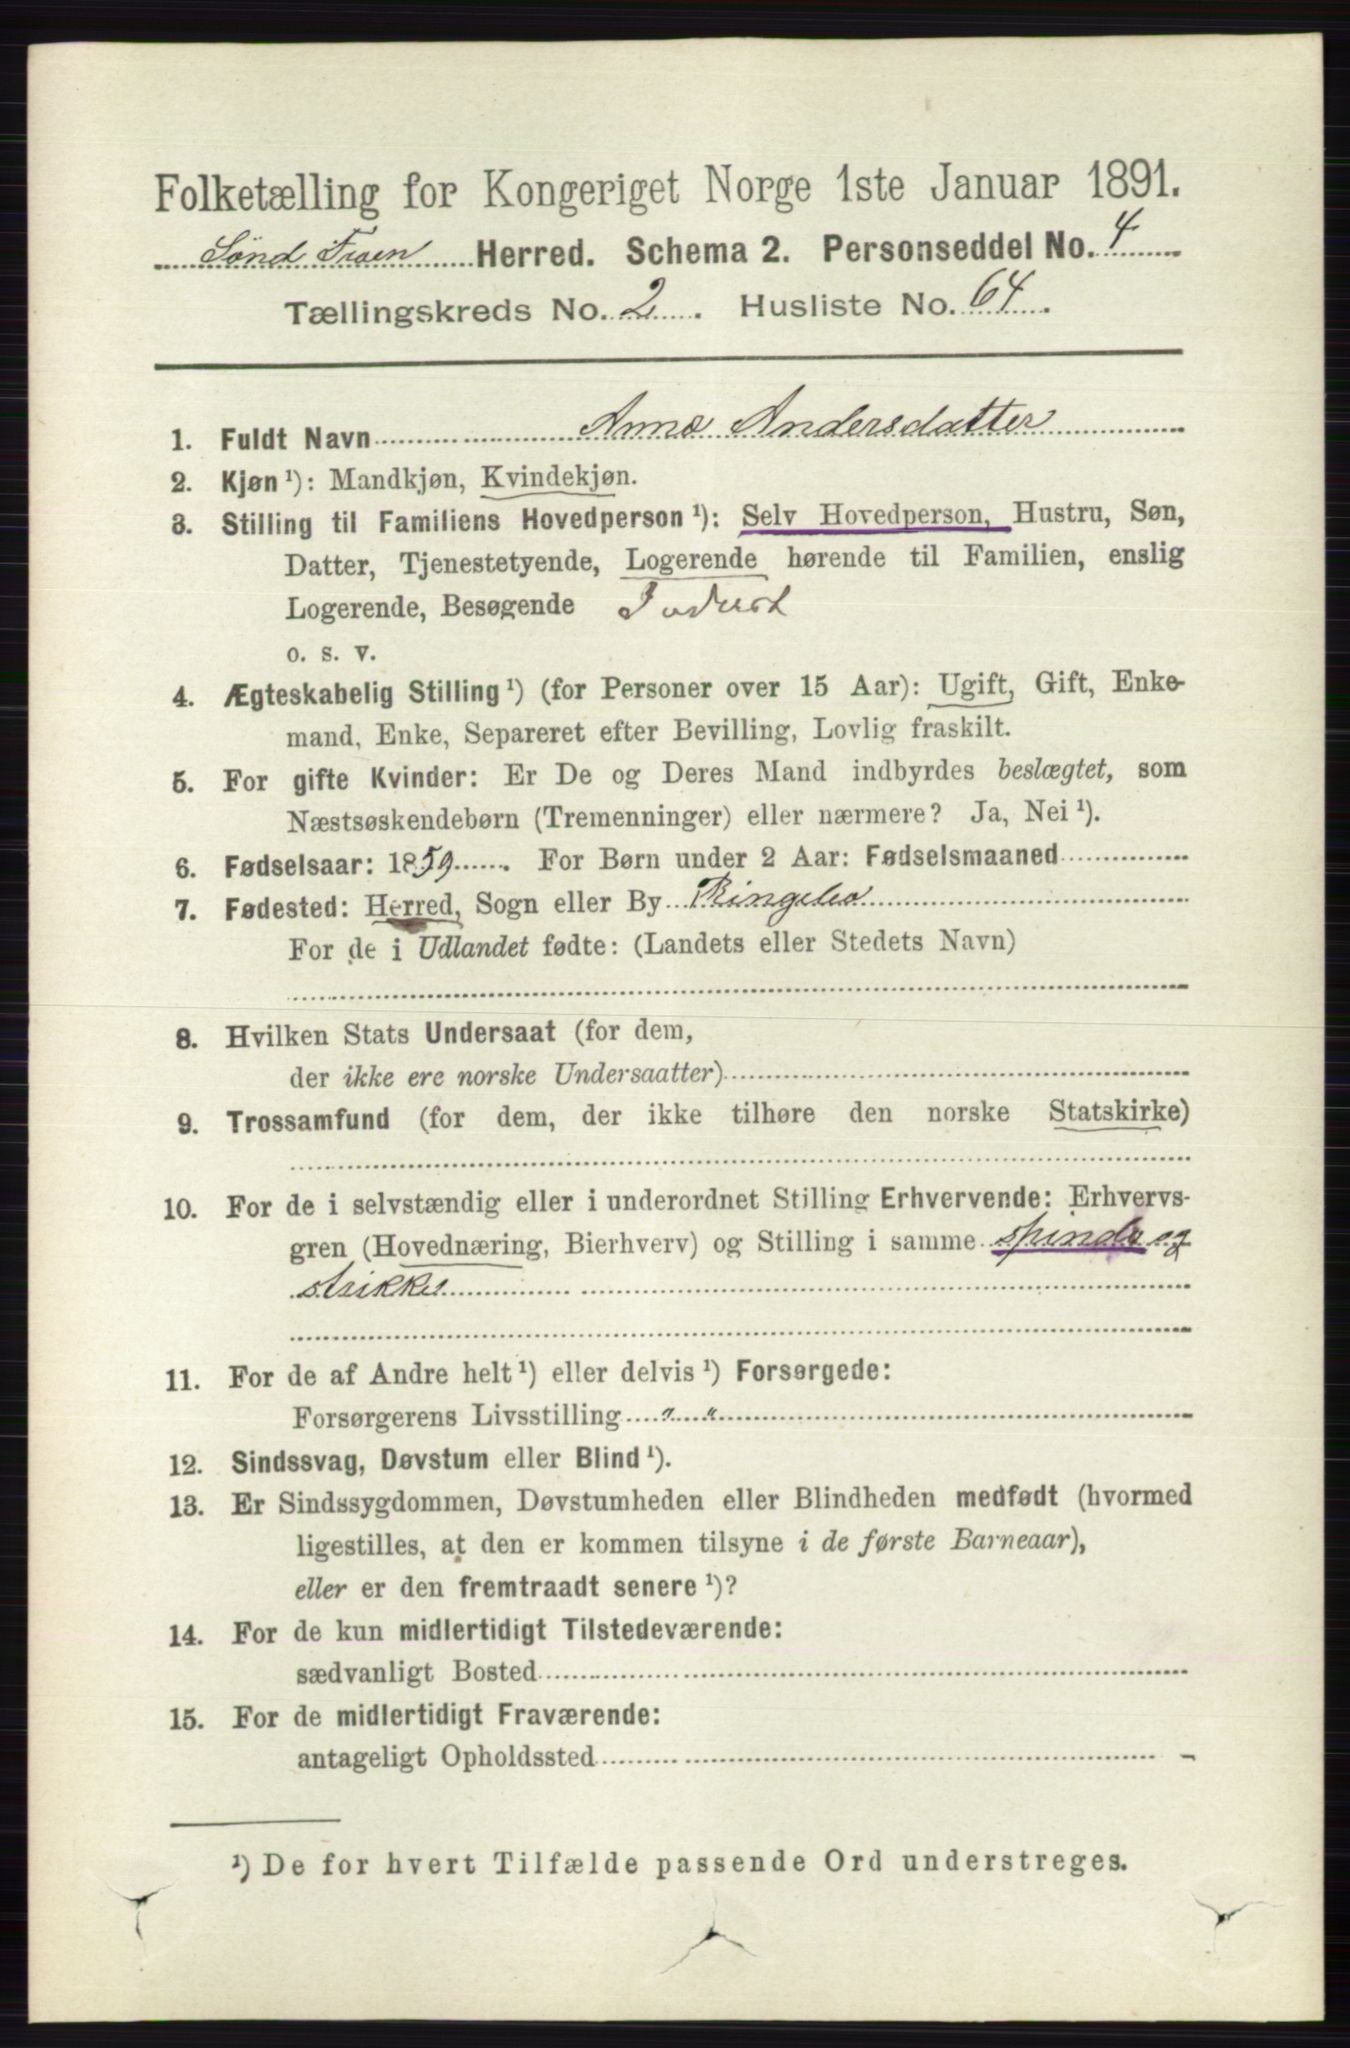 Folketælling for Kongeriget Norge 1ste Januar 1891.
Sønd Froen Herred. Schema 2. Personseddel No. 4
Tællingskreds No. 2. Husliste No. 64.
1. Fuldt Navn Anne Andersdatter
2. Kjøn ¹): Mandkjøn, Kvindekjøn.
3. Stilling til Familiens Hovedperson ¹): Selv Hovedperson, Hustru, Søn,
Datter, Tjenestetyende, Logerende hørende til Familien, enslig
Logerende, Besøgende
o. s. v.
4. Ægteskabelig Stilling ¹) (for Personer over 15 Aar): Ugift, Gift, Enke-
mand, Enke, Separeret efter Bevilling, Lovlig fraskilt.
5. For gifte Kvinder: Er De og Deres Mand indbyrdes beslægtet, som
Næstsøskendebørn (Tremenninger) eller nærmere? Ja, Nei ¹).
6. Fødselsaar: 1859. For Børn under 2 Aar: Fødselsmaaned
7. Fødested: Herred, Sogn eller By Ringebo
For de i Udlandet fødte: (Landets eller Stedets Navn)
8. Hvilken Stats Undersaat (for dem,
der ikke ere norske Undersaatter)
9. Trossamfund (for dem, der ikke tilhøre den norske Statskirke)
10. For de i selvstændig eller i underordnet Stilling Erhvervende: Erhvervs-
gren (Hovednæring, Bierhverv) og Stilling i samme spinde og
strikke
11. For de af Andre helt ¹) eller delvis ¹) Forsørgede:
Forsørgerens Livsstilling " "
12. Sindssvag, Døvstum eller Blind ¹).
13. Er Sindssygdommen, Døvstumheden eller Blindheden medfødt (hvormed
ligestilles, at den er kommen tilsyne i de første Barneaar),
eller er den fremtraadt senere ¹)?
14. For de kun midlertidigt Tilstedeværende:
sædvanligt Bosted
15. For de midlertidigt Fraværende:
antageligt Opholdssted
¹) De for hvert Tilfælde passende Ord understreges.